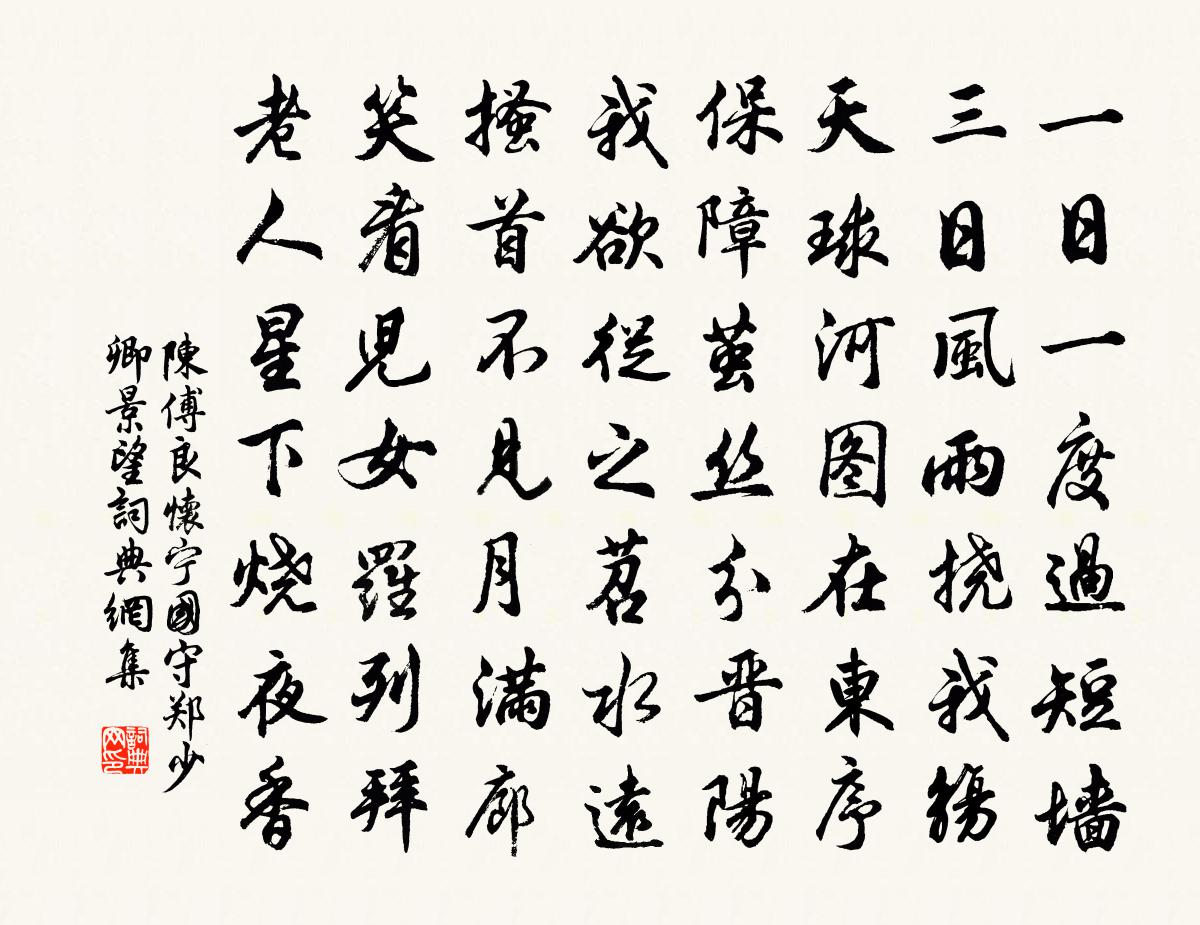 一日一度過短墙
三日風雨撓我觴
天球河图在東序
保障茧丝分晋陽
我欲從之苕水遠
搔首不見月满廊
笑看兒女羅列拜
老人星下燒夜香
陳傅良懷宁國守郑少
卿景望詞典網集
詞典网印